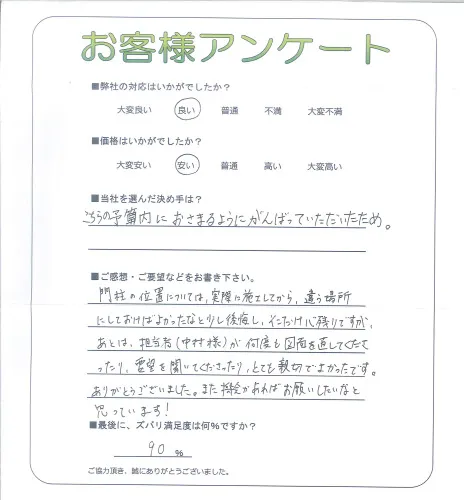 お客様アンケート
■弊社の対応はいかがでしたか？
大変良い 良い 普通 不満 大変不満
■価格はいかがでしたか？
大変安い 安い 普通 高い 大変高い
■当社を選んだ決め手は？
こちらの予算内におさまるようにがんばっていただいたため。
■ご感想・ご要望などをお書き下さい。
門柱の位置については、実際に施工してから、違う場所
にしておけばよかったなと少し後悔し、そこだけ心残りですが、
あとは、担当者(中村様)が何度も図面を直してくださ
ったり、要望を聞いてくださったり、とても親切でよかったです。
ありがとうございました。また機会があればお願いしたいなと
思っています！
■最後に、ズバリ満足度は何％ですか？
90 %
ご協力頂き、誠にありがとうございました。